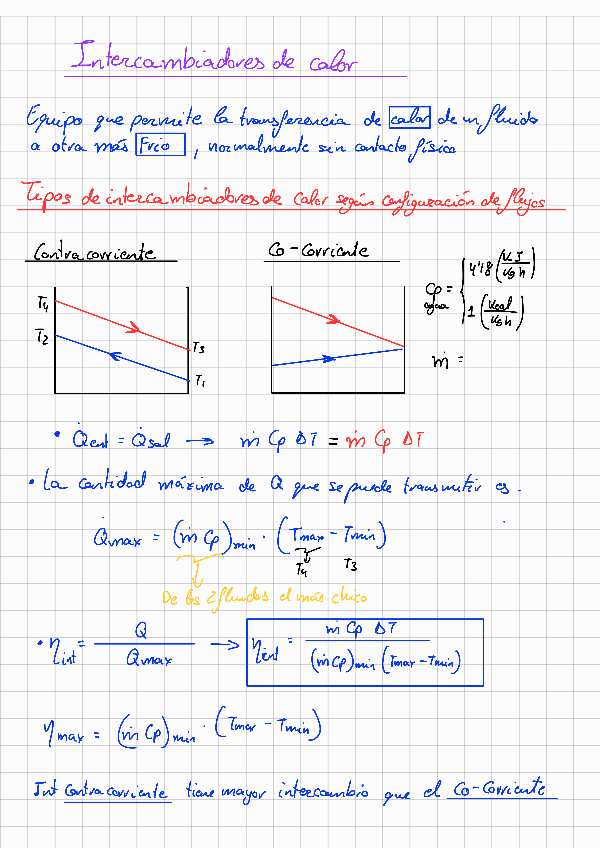 Intercambiadores de calor
Equipo que permite la transferencia de calor de un fluido
a otra más Frío, normalmente sin contacto físico
Tipos de intercambiadores de calor según configuración de flujos
Contracorriente
Co-Corriente
T4
T2
T3
T1
Cp agua = { 4'18 (KJ/Kg K)
1 (Kcal/Kg K)
ṁ =
• Q̇ent = Q̇sal → ṁ Cp ΔT = ṁ Cp ΔT
• La cantidad máxima de Q que se puede transmitir es.
Q̇max = (ṁ Cp)min · (Tmax - Tmin)
T4 T3
De los 2 fluidos el más chico
• ηint = Q / Qmax → ηint = ṁ Cp ΔT / (ṁ Cp)min (Tmax - Tmin)
ηmax = (ṁ Cp)min · (Tmax - Tmin)
Int Contracorriente tiene mayor intercambio que el Co-Corriente